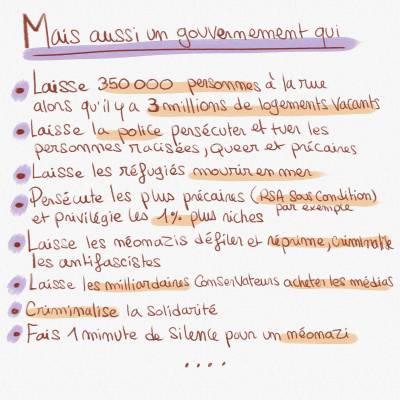 Mais aussi un gouvernement qui
Laisse 350 000 personnes à la rue
alors qu'il y a 3 millions de logements vacants
Laisse la police persécuter et tuer les
personnes racisées, queer et précaires
Laisse les réfugiés mourir en mer
Persécute les plus précaires (RSA sous condition)
par exemple
et privilégie les 1% plus riches
Laisse les néonazis défiler et réprime, criminalise
les antifascistes
Laisse les milliardaires conservateurs acheter les médias
Criminalise la solidarité
Fais 1 minute de silence pour un néonazi
....